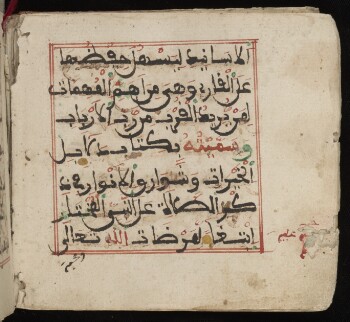 الاسانيد ليسهل حفظها
على القارئ وهي من اهم المهمات
لمن يريد القرب من رب الارباب
وسميته بكتاب دلايل
الخيرات وشوارق الانوار في
ذكر الصلاة على النبي المختار
ابتغاء لمرضات الله تعالى